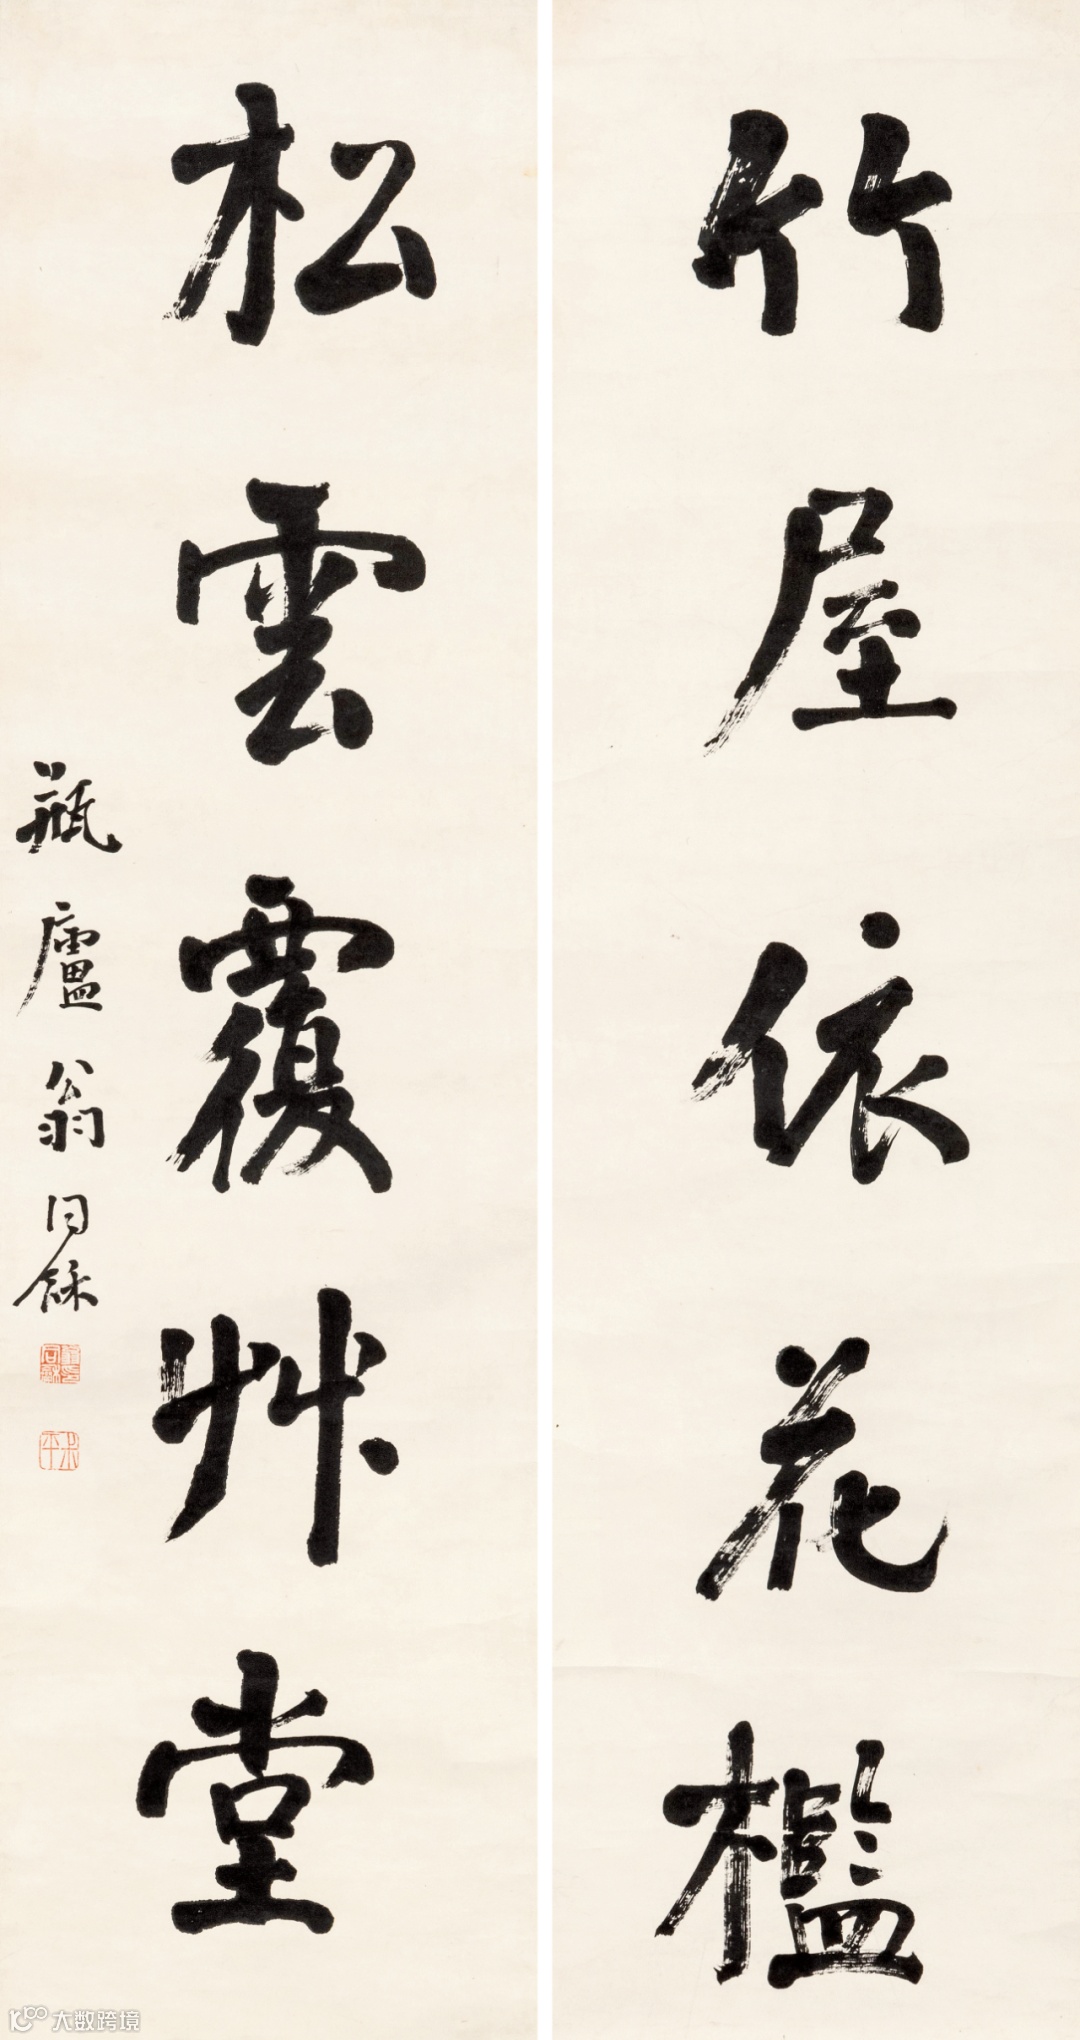 竹屋依花檻
松雲覆艸堂
瓶廬翁同龢
大数跨境